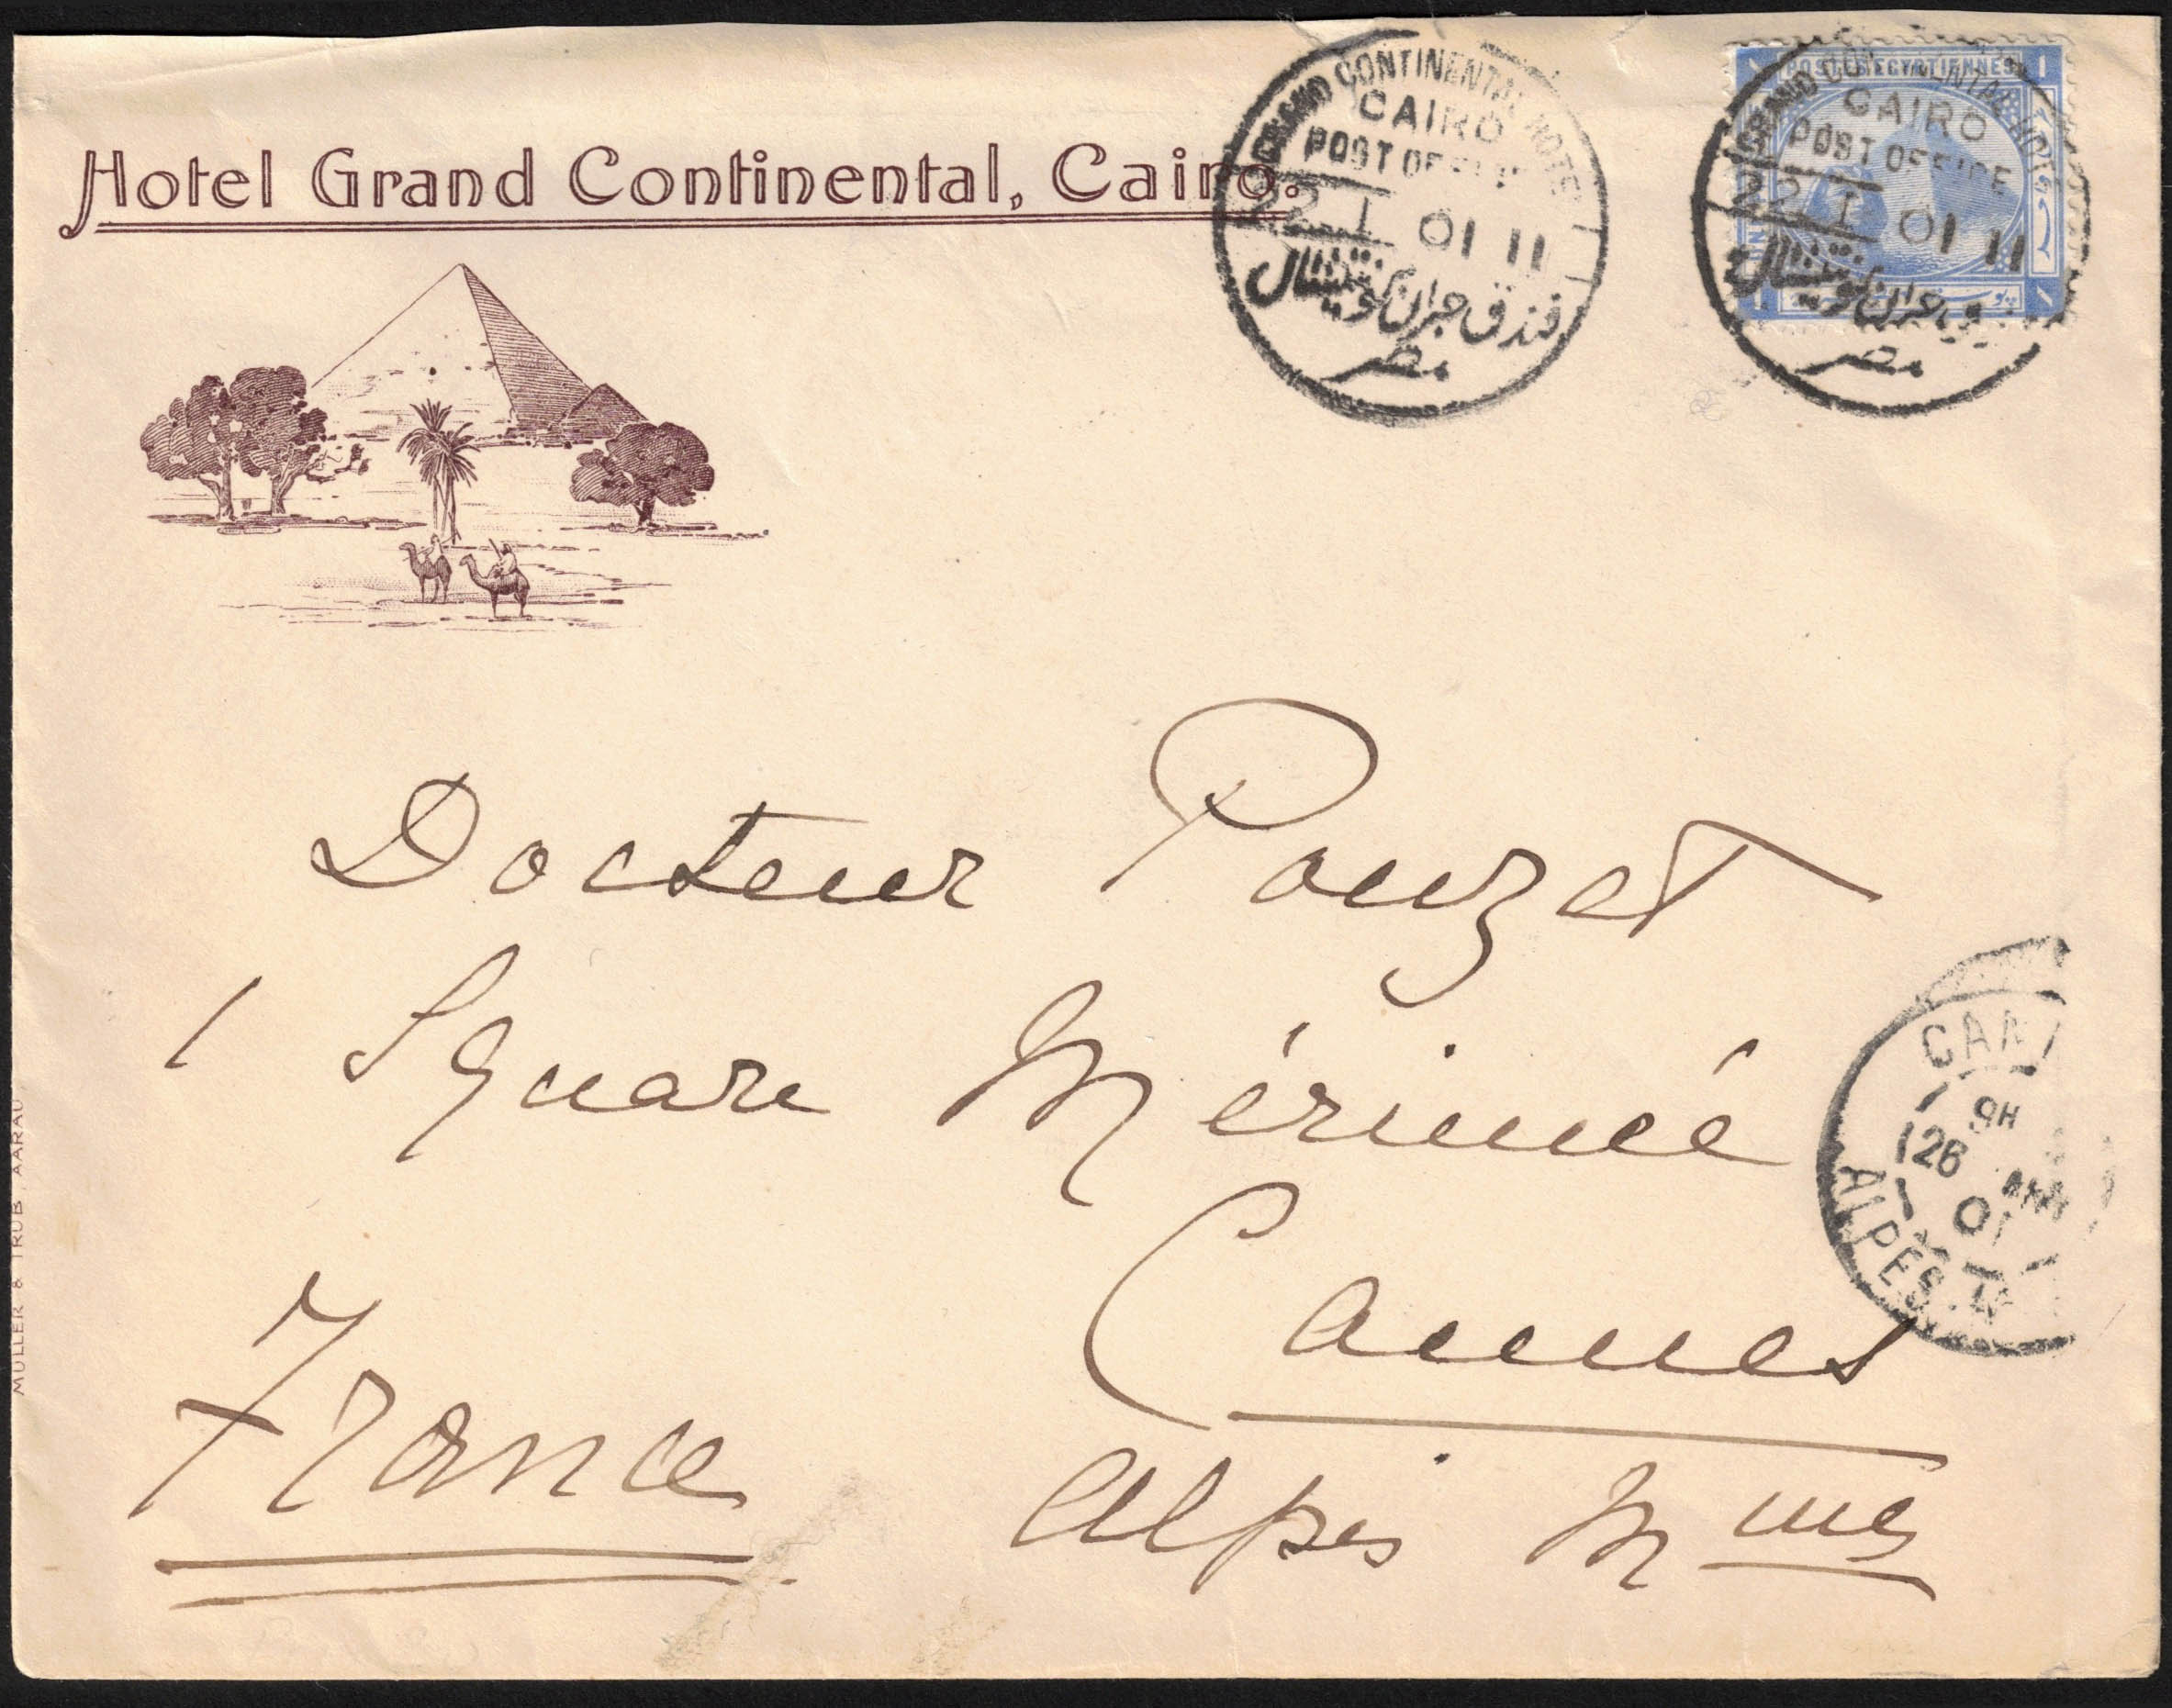 Hotel Grand Continental, Cairo.
GRAND CONTINENTAL HOTEL
CAIRO
POST OFFICE
22. I 01 11
فندق جران كونتيننتال
مصر
POSTES EGYPTIENNES
1 1
GRAND CONTINENTAL HOTEL
CAIRO
POST OFFICE
22. I 01 11
مصر
Docteur Pouzet
1 Square Mérimée
Cannes
Alpes Mmes
France
CAN
9H
26 JANV
01
ALPES-M
MÜLLER & TRÜB, AARAU